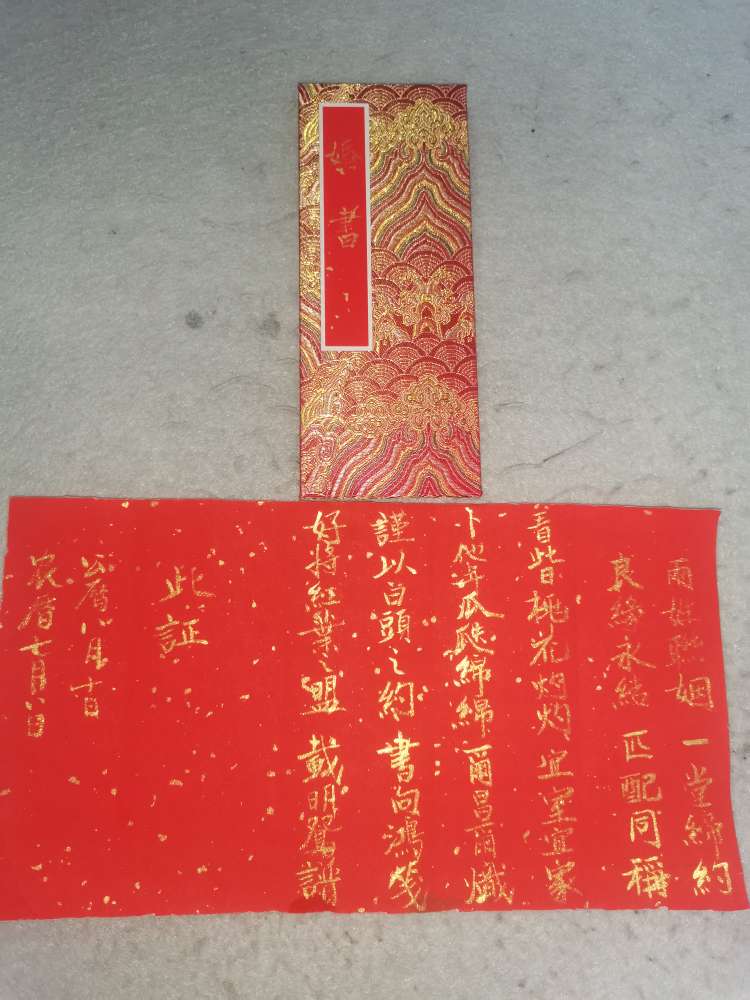 婚書
兩姓聯姻 一堂締約
良緣永結 匹配同稱
看此日桃花灼灼 宜室宜家
卜他年瓜瓞綿綿 爾昌爾熾
謹以白頭之約 書向鴻箋
好將紅葉之盟 載明鴛譜
此証
公曆八月十日
农曆七月八日